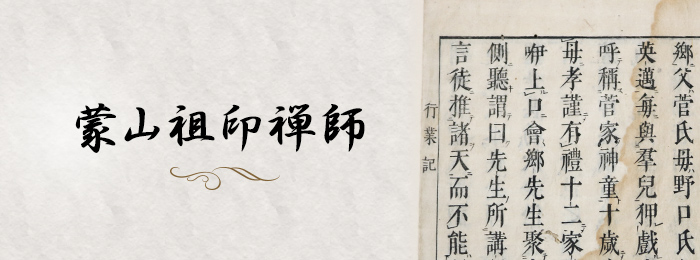 蒙山祖印禅師
鄉父菅氏毋野口氏
英邁每與羣兒狎戲
呼稱菅家神童十歲
母孝謹有禮十二家
咿上口會鄉先生聚
側聽謂曰先生所講
言徒推諸天而不能
行業記